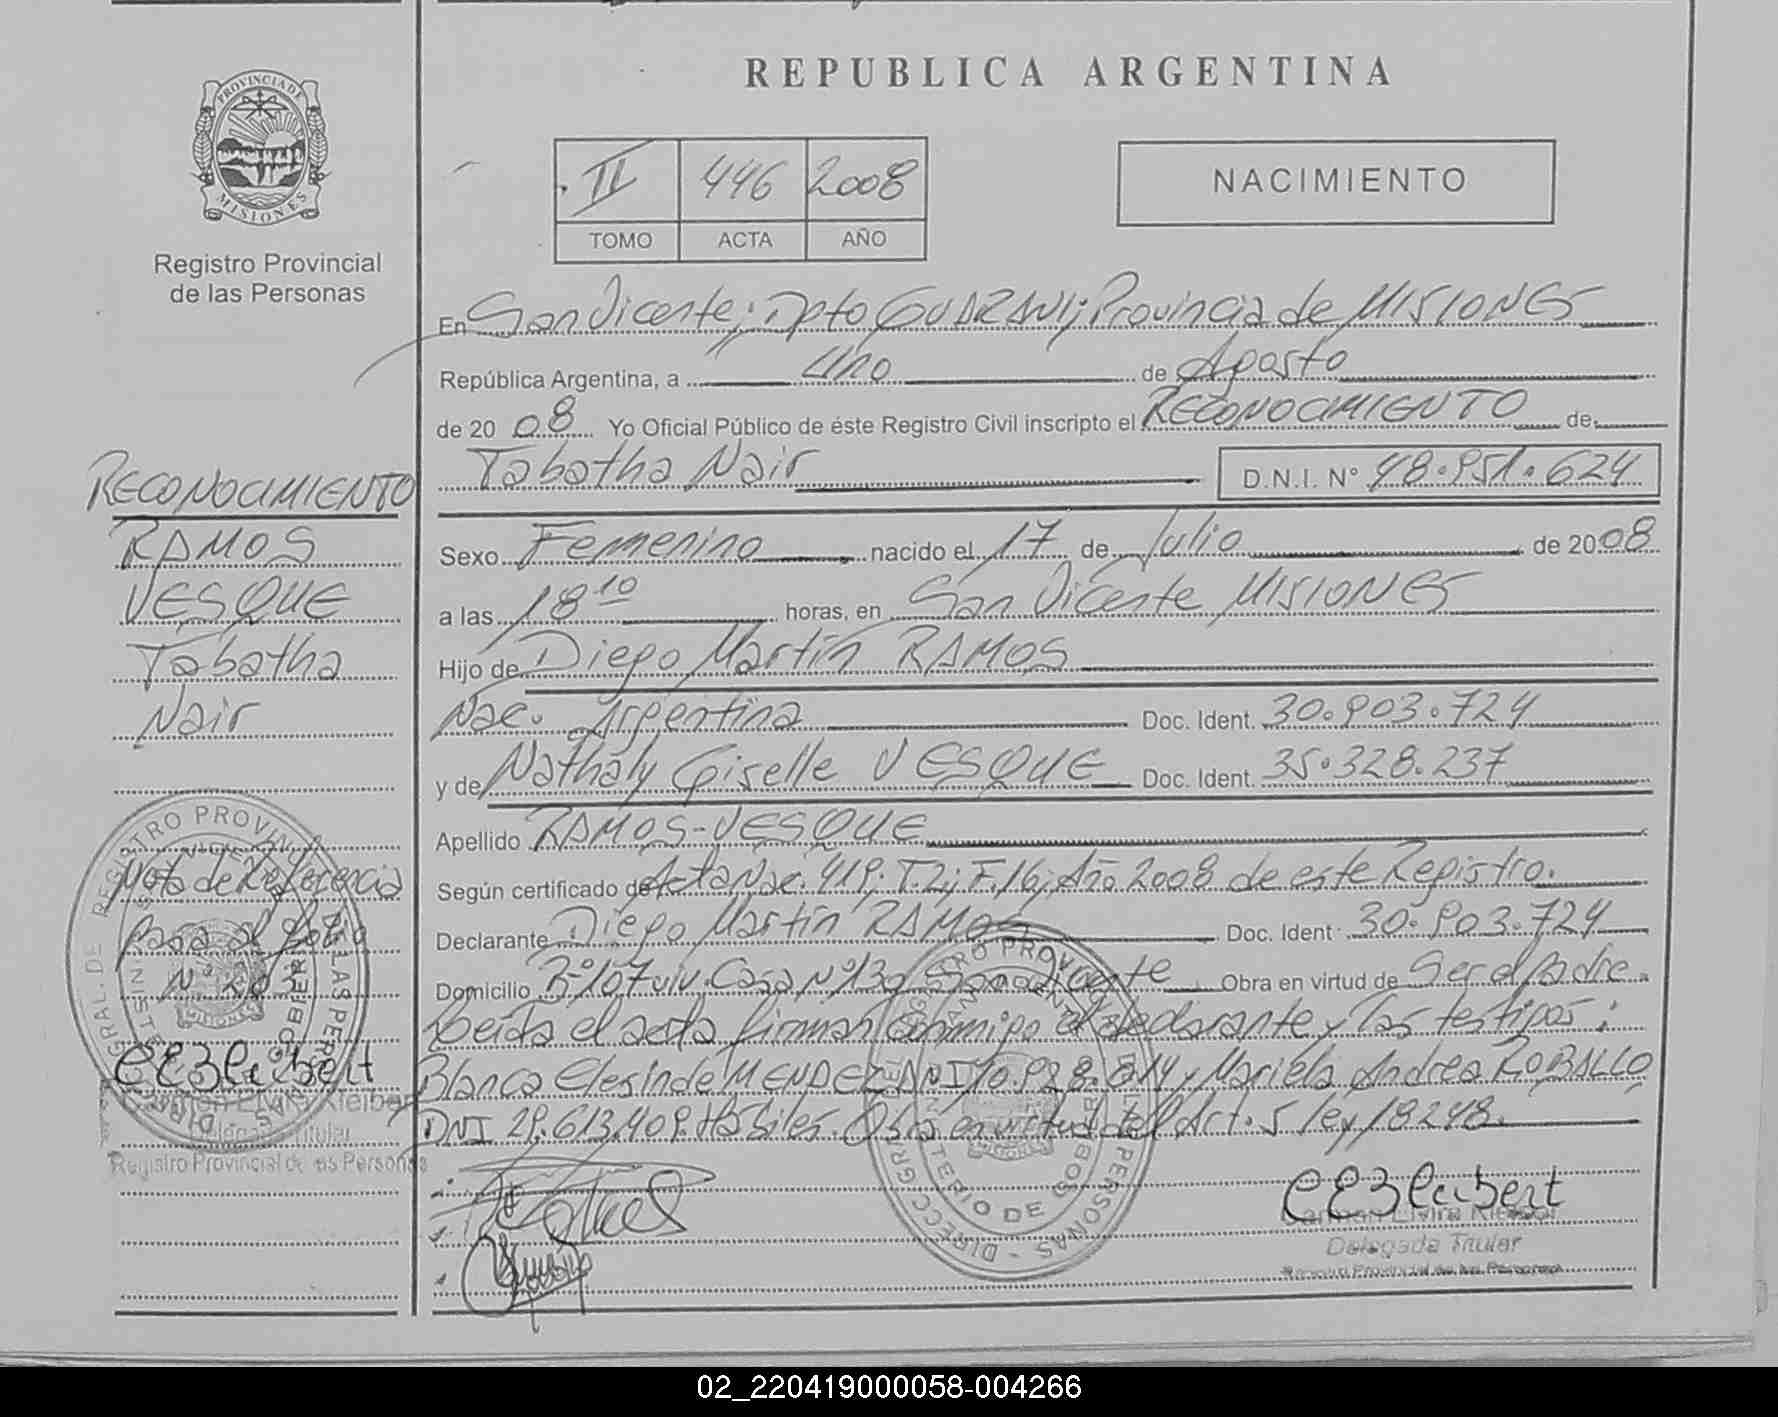 REPUBLICA ARGENTINA
PROVINCIA DE
MISIONES
Registro Provincial
de las Personas
II 446 2008
TOMO ACTA AÑO
NACIMIENTO
En San Vicente; Dpto GUARANI; Provincia de MISIONES
República Argentina, a Uno de Agosto
de 2008 Yo Oficial Público de éste Registro Civil inscripto el RECONOCIMIENTO de
Tabatha Nair D.N.I. Nº 48.951.624
Sexo Femenino nacido el 17 de Julio de 2008
a las 18 10 horas, en San Vicente MISIONES
Hijo de Diego Martín RAMOS
Nac. Argentina Doc. Ident. 30.903.724
y de Nathaly Giselle VESQUE Doc. Ident. 35.328.237
Apellido RAMOS-VESQUE
Según certificado de Acta Nac. 419; T.2; F.16; Año 2008 de este Registro.
Declarante Diego Martín RAMOS Doc. Ident. 30.903.724
Domicilio Bº 107 viv. Casa Nº 13 San Vicente Obra en virtud de Ser el padre.
Leída el acta firman conmigo el declarante y las testigos:
Blanca MENDEZ y Mariela Andrea ROBALLO
DNI 29.613.409. Hábiles. Obra en virtud del Art. 5 ley 18248.
RECONOCIMIENTO
RAMOS
VESQUE
Tabatha
Nair
Nota de Referencia
pasa al folio
Nº 20
Carmen Elvira Kleibert
Delegada Titular
Registro Provincial de las Personas
Carmen Elvira
Delegada Titular
Registro Provincial de las Personas
02_220419000058-004266